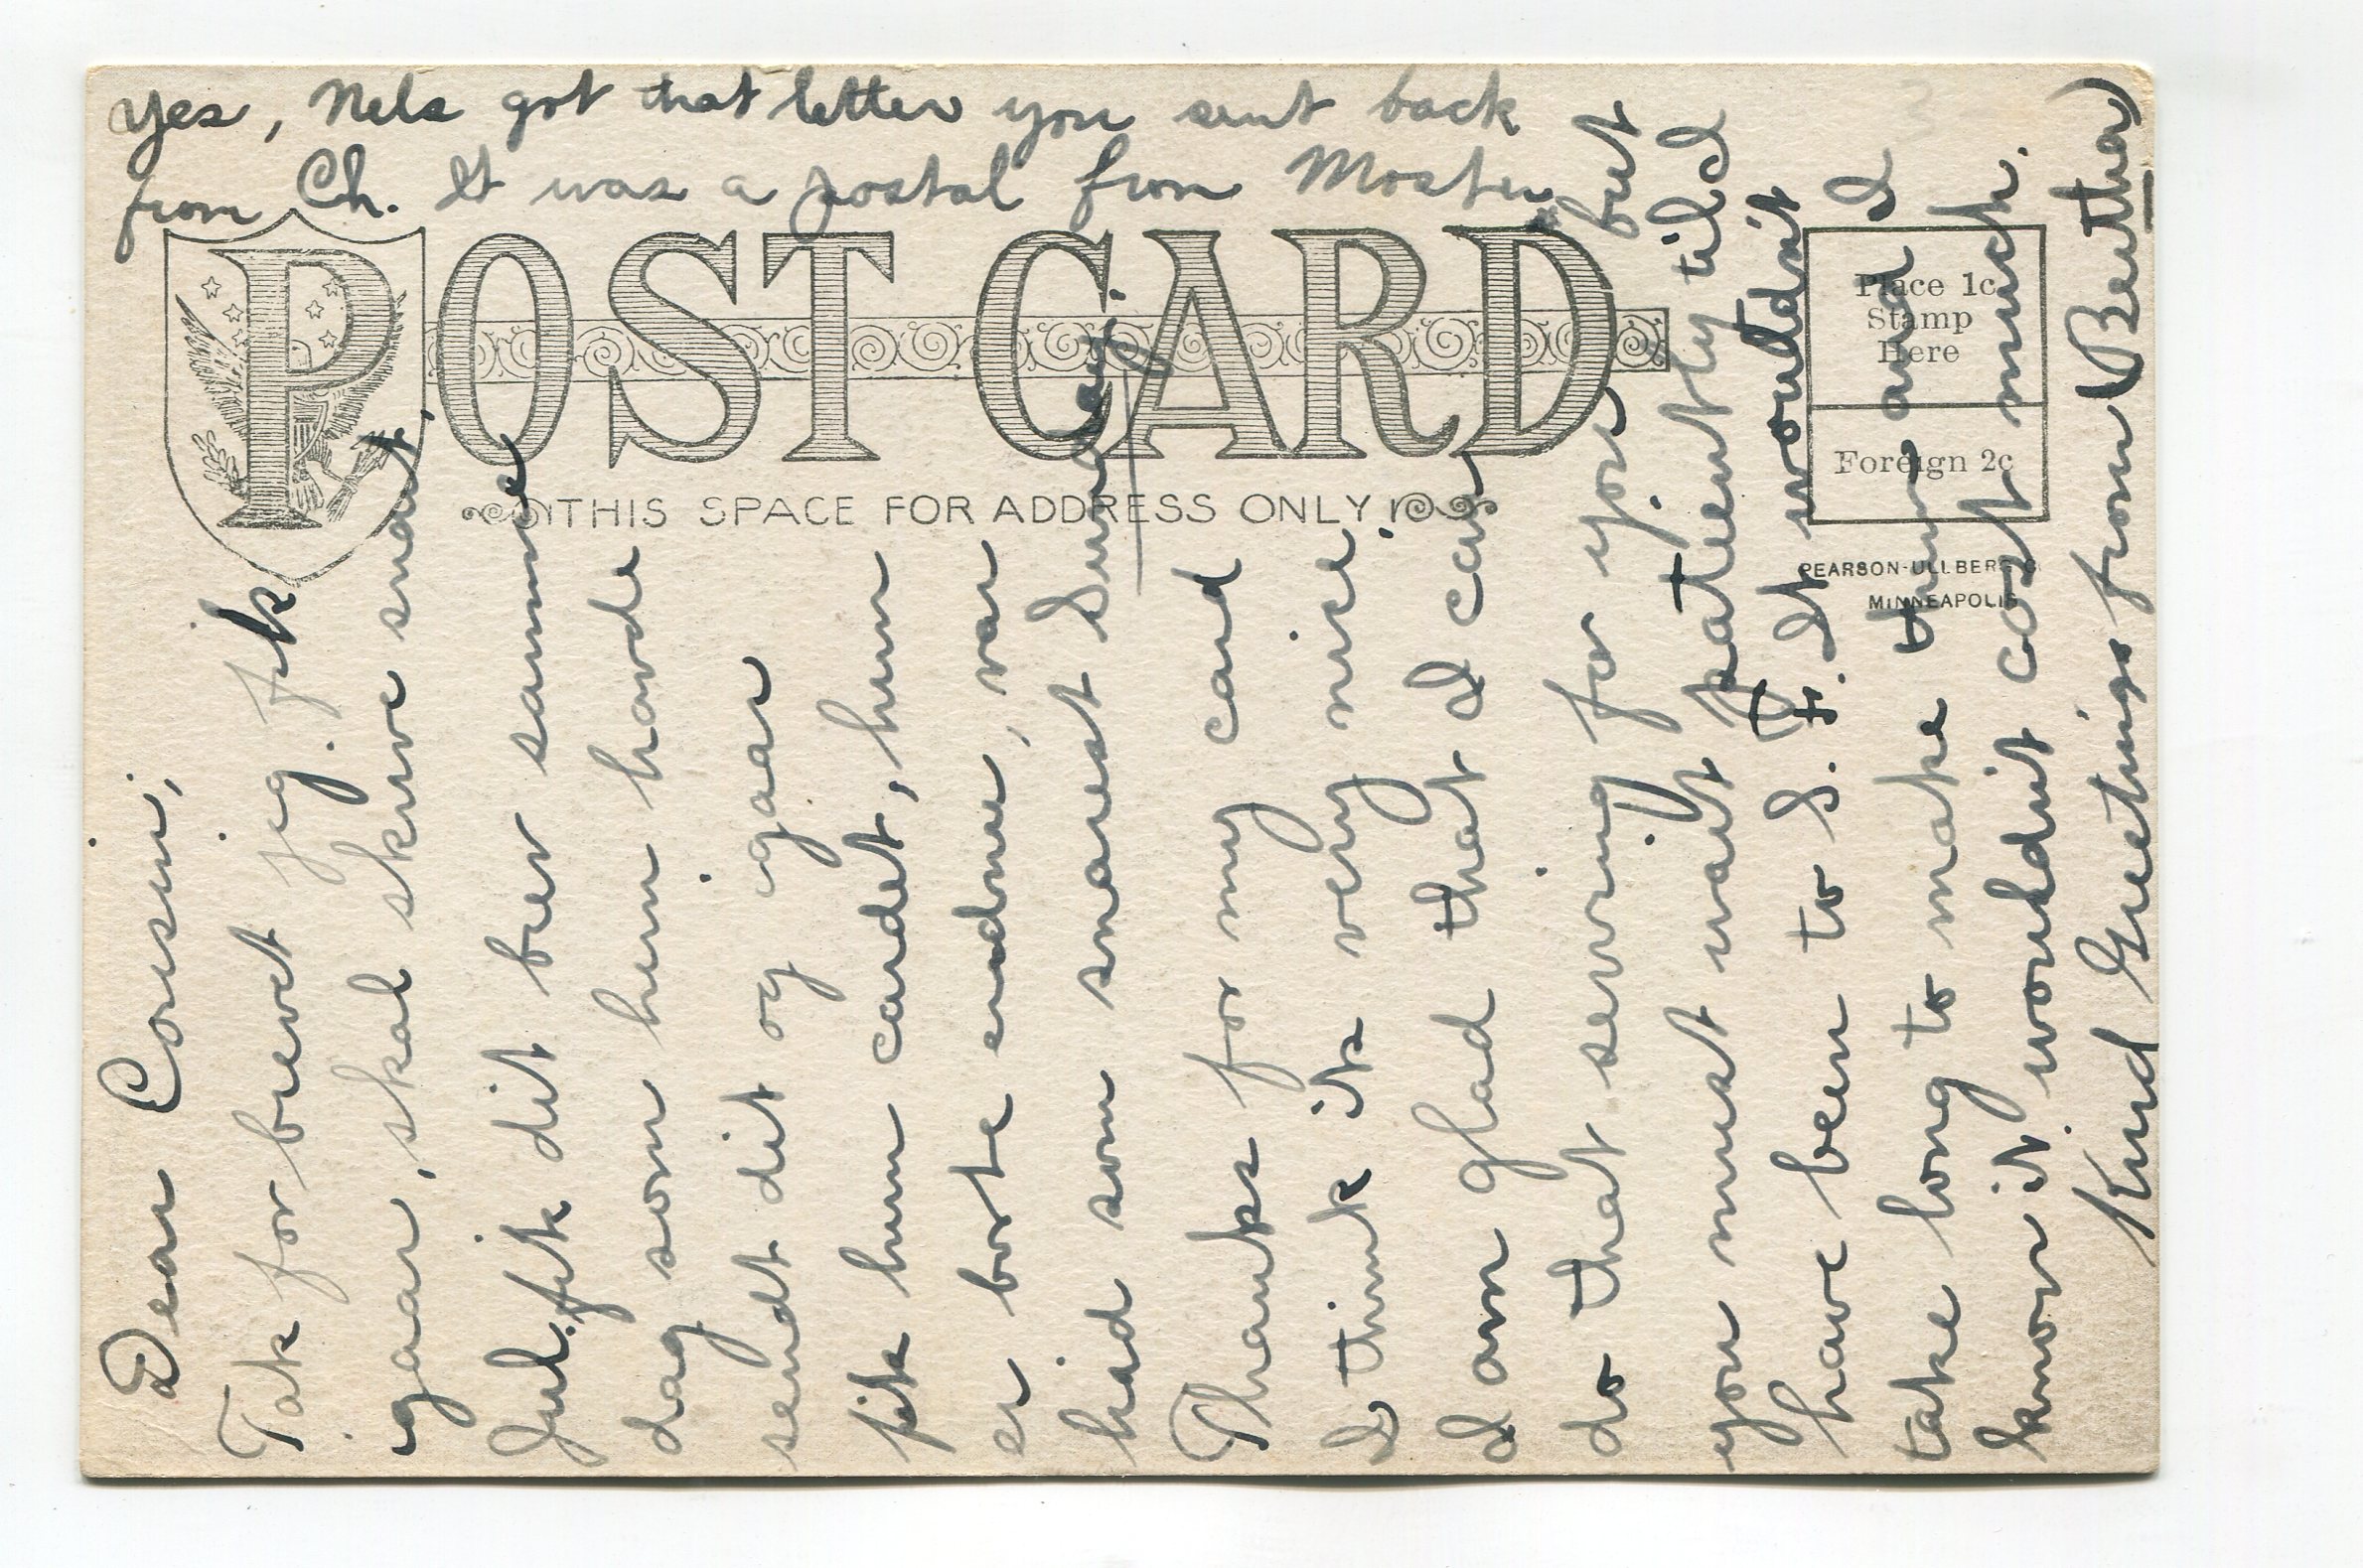 Yes, Nels got that letter you sent back
from Ch. It was a postal from Moster
POST CARD
THIS SPACE FOR ADDRESS ONLY
Place 1c
Stamp
Here
Foreign 2c
PEARSON-ULLBERG
MINNEAPOLIS
Dear Cousin;
Tak for brevet jeg. fik
igaar, skal skrive snart.
Jul. fik dit brev samme
dag som hun havde
sendt dit og igaar
fik hun cardet, hun
er borte endnu, var
hid som snarest Sunday.
Thanks for my card
I think its very nice.
I am glad that I can
do that sewing for you but
you must wait patiently till I
have been to S. F. It wouldnt
take long to make them and I
know it wouldnt cost much.
Kind Greetings from (Bertha)